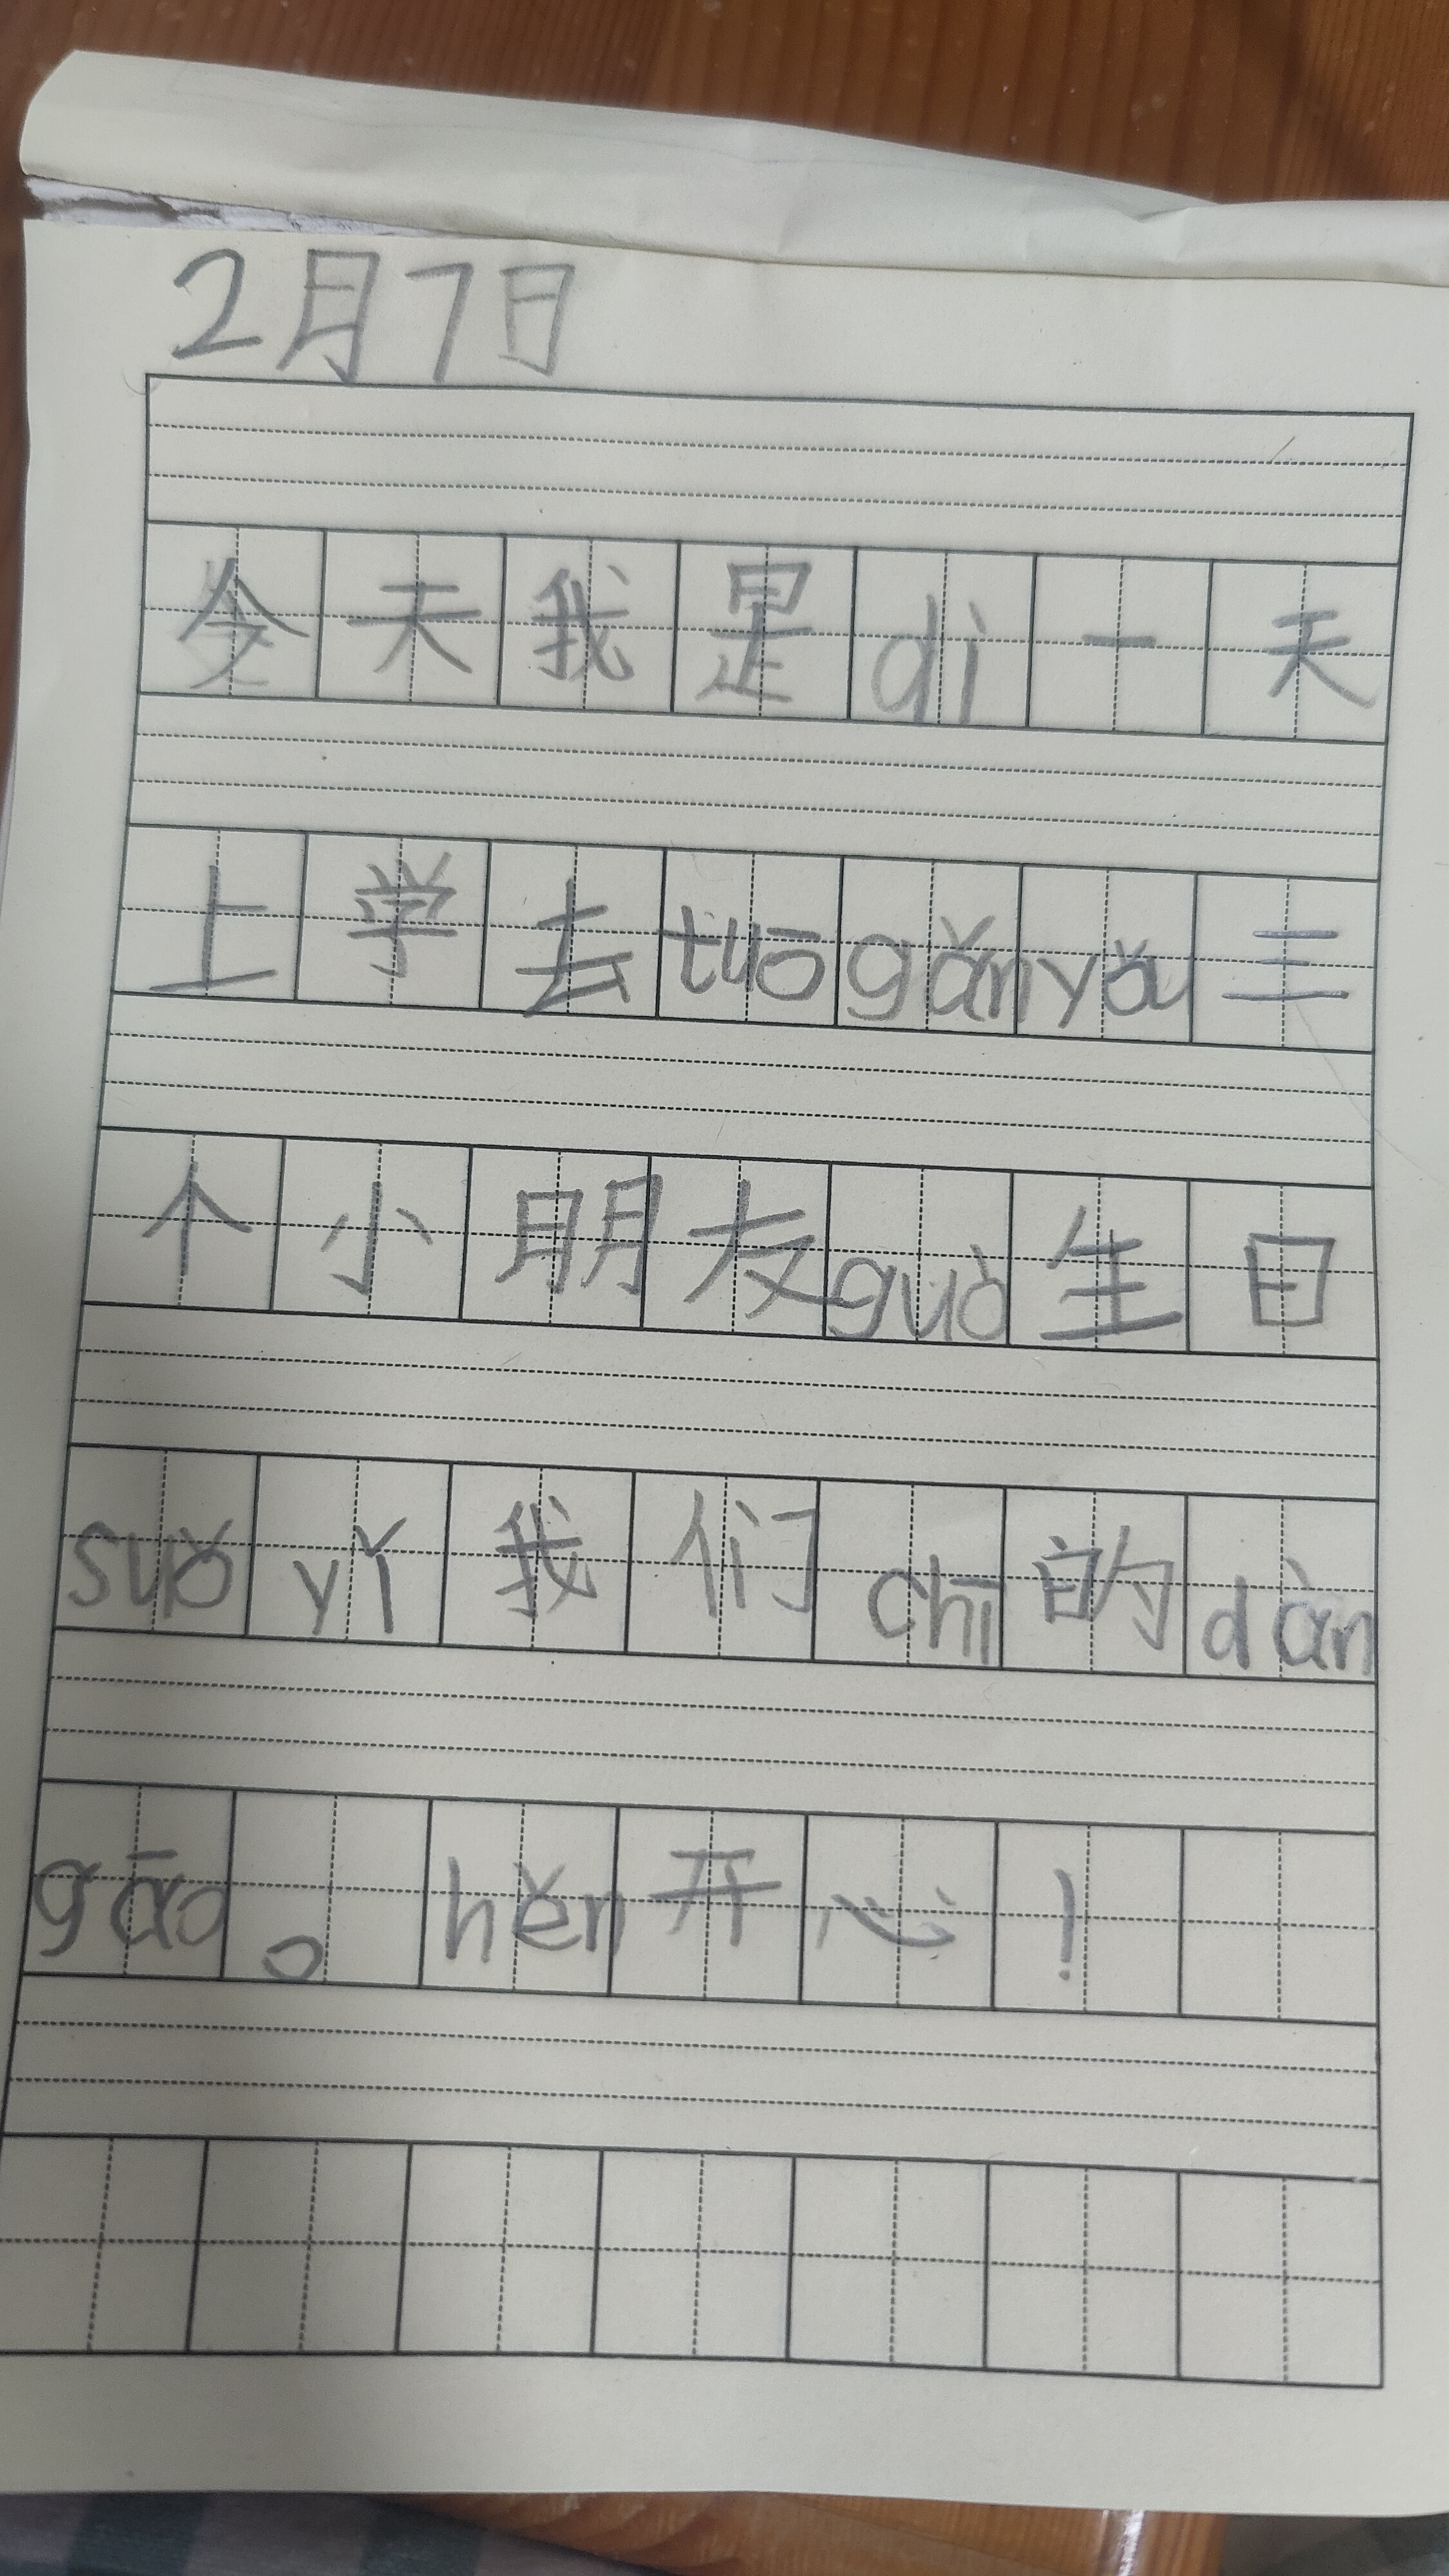 2月7日
今天我是dì一天
上学去tuōgǎnyǒu三
个小朋友guò生日
suǒyǐ我们chī的dàn
gāo。hěn开心!